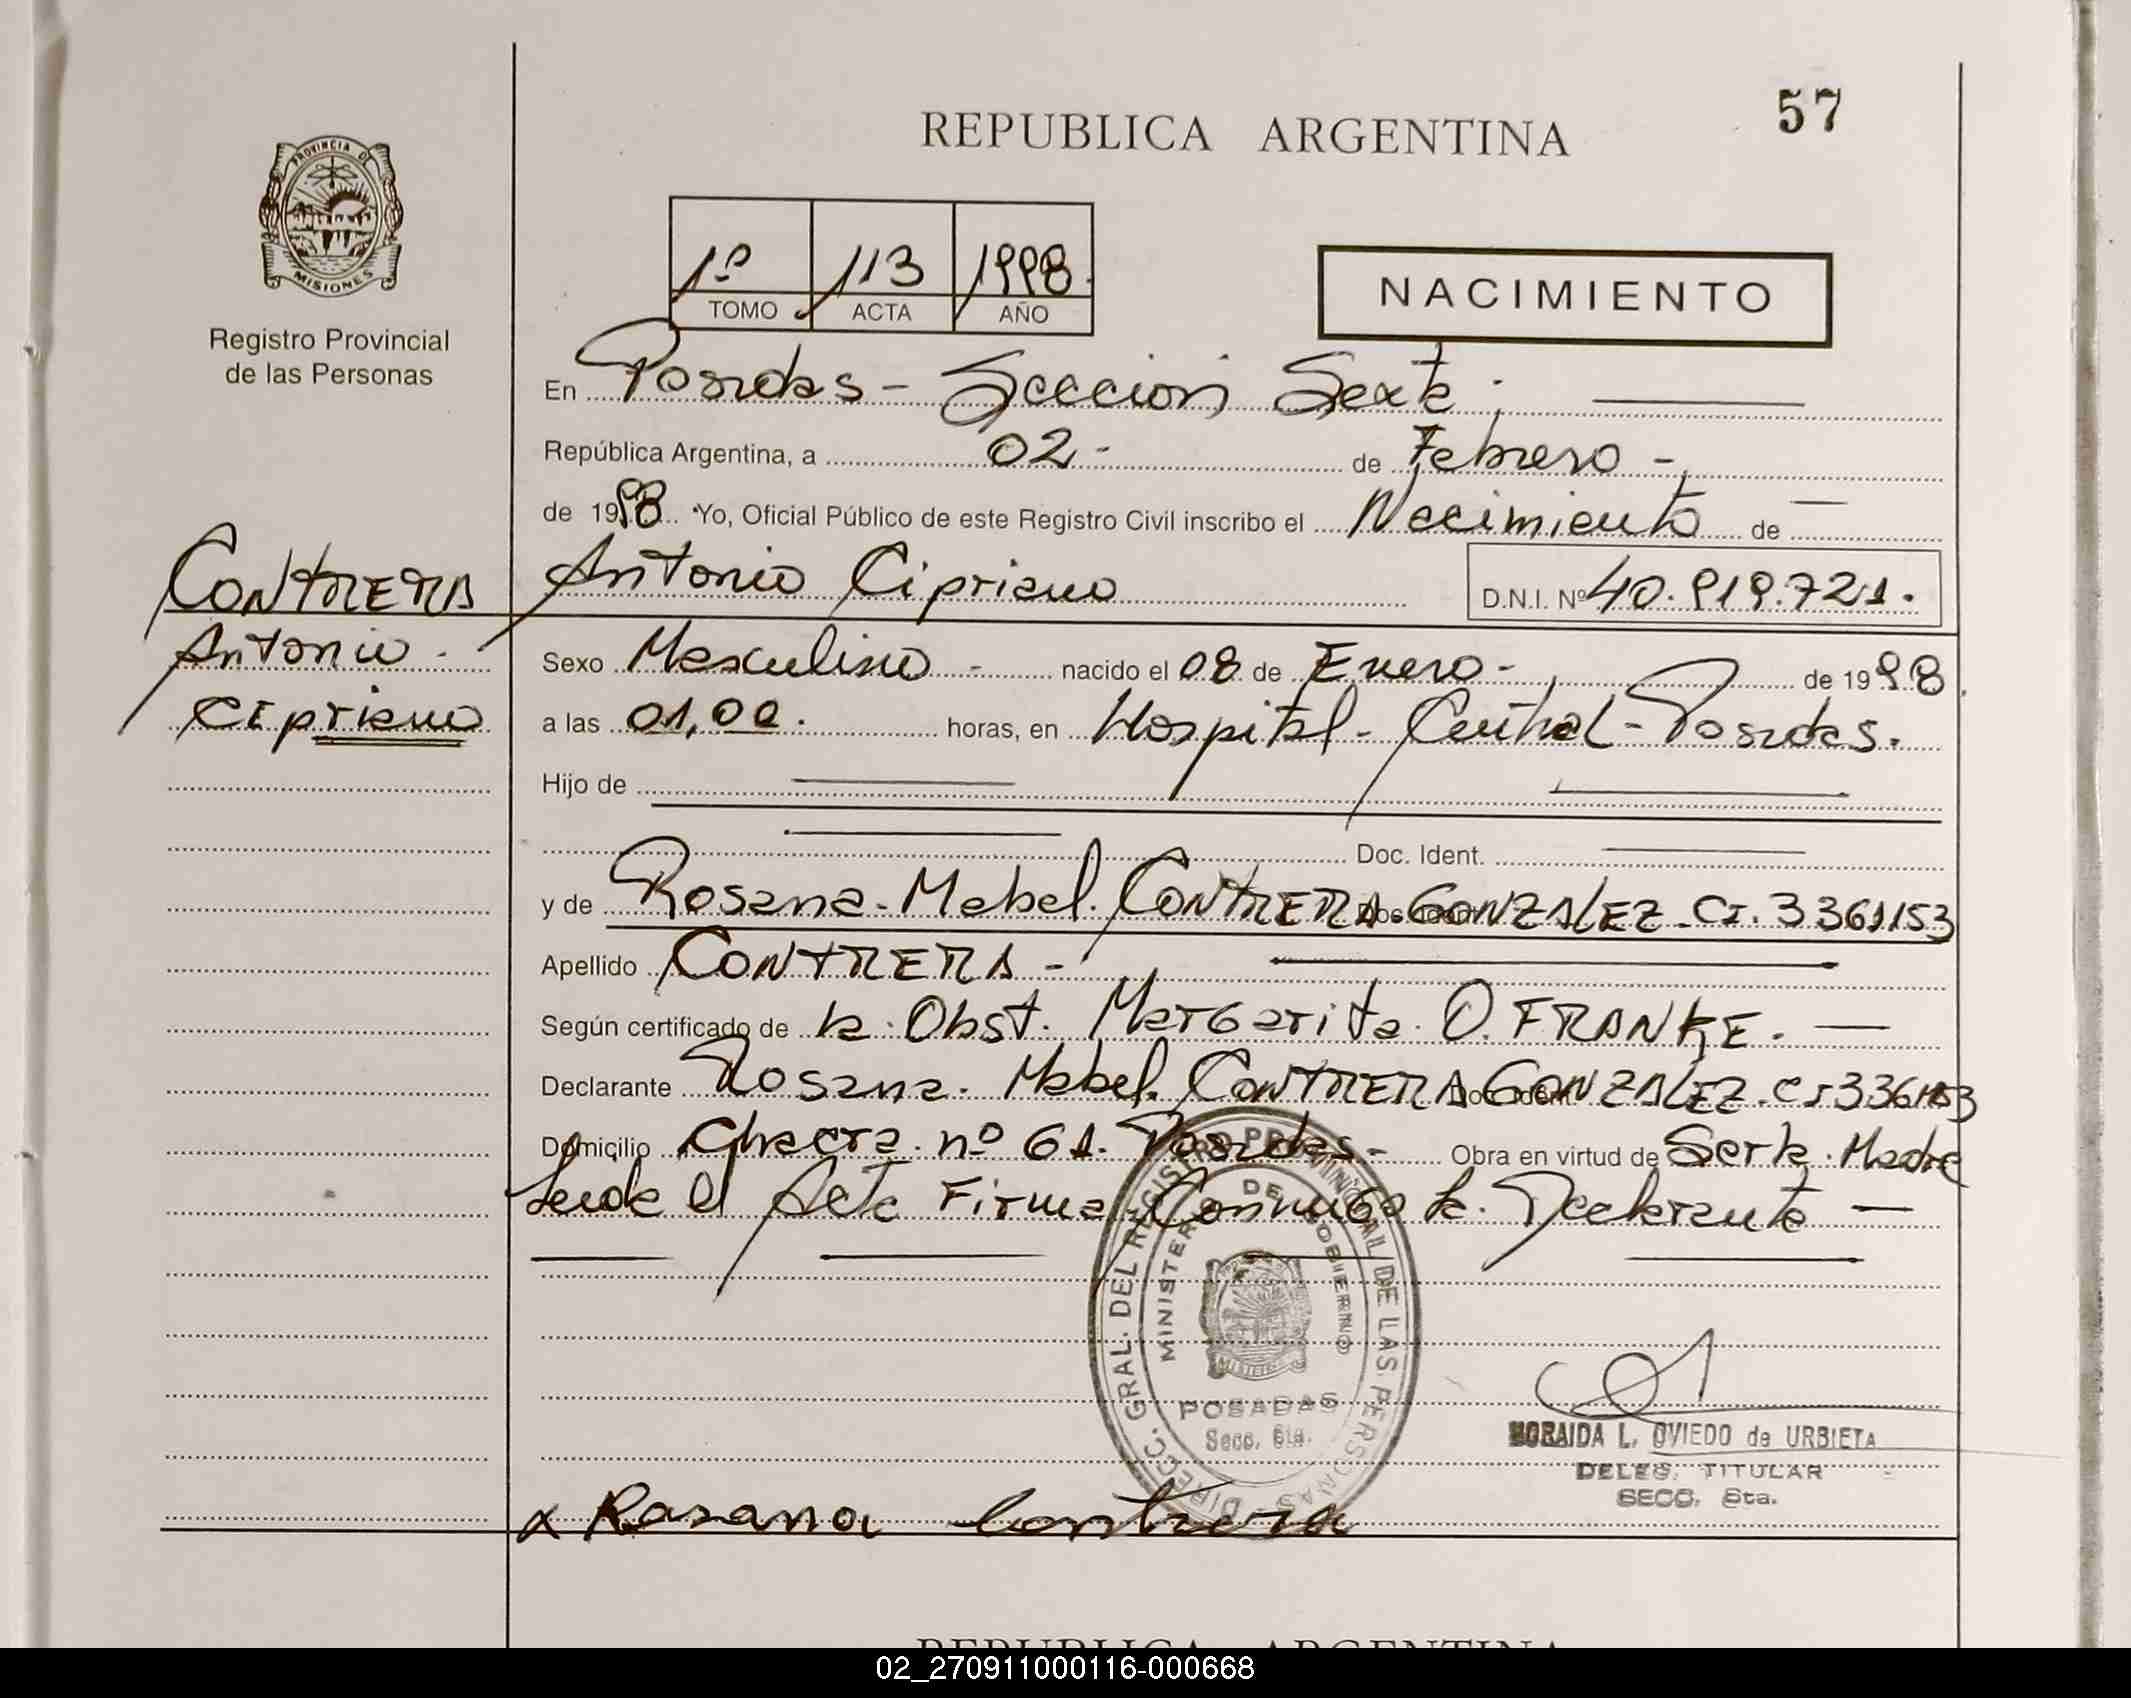 57
REPUBLICA ARGENTINA
PROVINCIA DE
MISIONES
Registro Provincial
de las Personas
1º 113 1998
TOMO ACTA AÑO
NACIMIENTO
En Posadas - Seccion Sexta.
República Argentina, a 02 - de Febrero -
de 1998 Yo, Oficial Público de este Registro Civil inscribo el Nacimiento de
CONTRERA
Antonio Cipriano
D.N.I. Nº 40.919.721.
Antonio -
Cipriano
Sexo Masculino - nacido el 08 de Enero - de 1998
a las 01,00. horas, en Hospital - Central - Posadas.
Hijo de
Doc. Ident.
y de Rosana - Mabel. CONTRERA GONZALEZ - CI. 3361153
Apellido CONTRERA -
Según certificado de la Obst. Margarita O. FRANKE.
Declarante Rosana. Mabel. CONTRERA GONZALEZ. CI 3361153
Domicilio Chacra nº 61. Posadas. - Obra en virtud de Ser la Madre
Leida el Acta Firma Conmigo la Declarante
DIRECC. GRAL. DEL REGISTRO PROVINCIAL DE LAS PERSONAS
MINISTERIO DE GOBIERNO
MISIONES
POSADAS
Secc. 6ta.
MORAIDA L. OVIEDO de URBIETA
DELEG. TITULAR
SECC. 6ta.
x Rosana Contrera
REPUBLICA ARGENTINA
02_270911000116-000668